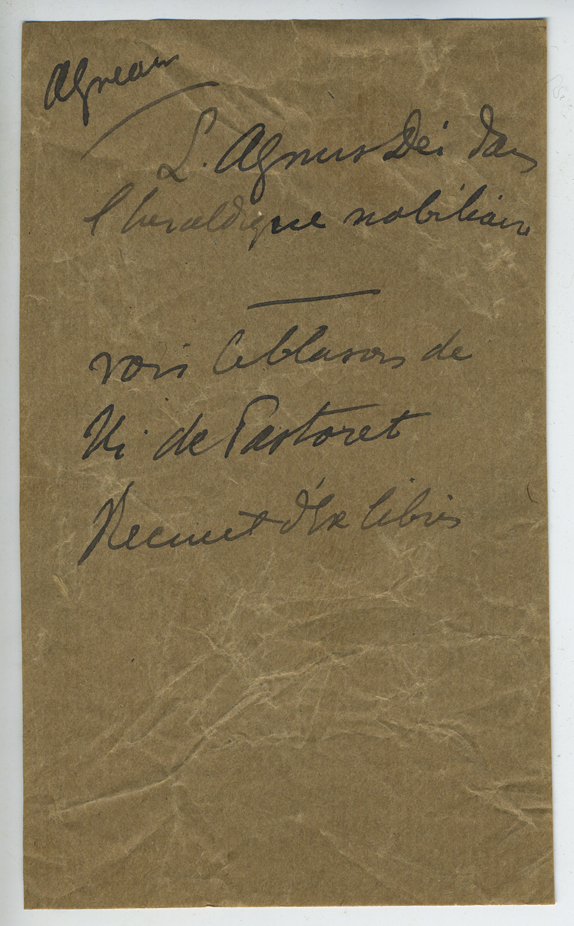 Agneau
L. Agnus Dei dans
l'heraldique nobiliaire
voir le blason de
de Pastoret
Recueil d'Ex libris